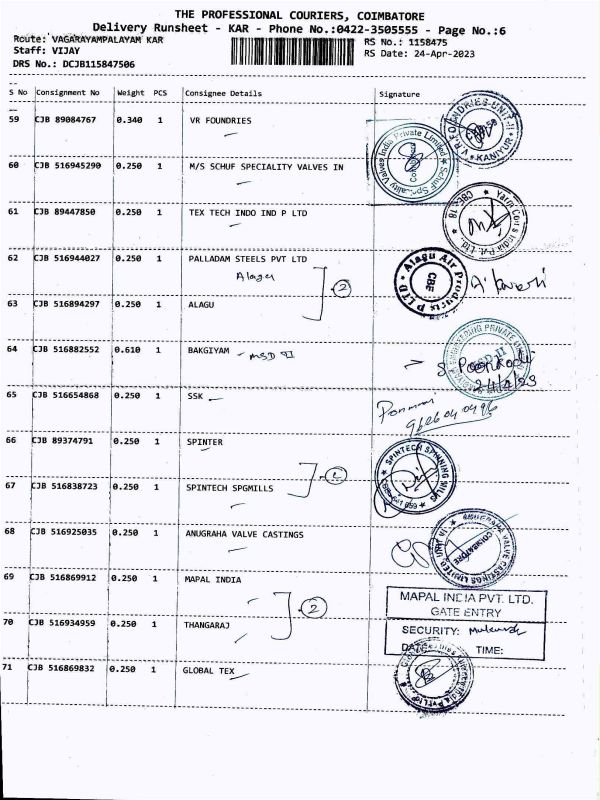 THE PROFESSIONAL COURIERS, COIMBATORE
Delivery Runsheet - KAR - Phone No.:0422-3505555 - Page No.:6
Route: VAGARAYAMPALAYAM KAR
RS No.: 1158475
Staff: VIJAY
RS Date: 24-Apr-2023
DRS No.: DCJB115847506
S No Consignment No Weight PCS Consignee Details Signature
59 CJB 89084767 0.340 1 VR FOUNDRIES
V.R.FOUNDRIES-UNIT-II KANIYUR
60 CJB 516945290 0.250 1 M/S SCHUF SPECIALITY VALVES IN
Schuf Speciality Valves India Private Limited
61 CJB 89447850 0.250 1 TEX TECH INDO IND P LTD
Yarm Cons India Pvt. Ltd. CBE - 18
62 CJB 516944027 0.250 1 PALLADAM STEELS PVT LTD
Alagu
2
Alagu Air Products P LTD CBE
63 CJB 516894297 0.250 1 ALAGU
64 CJB 516882552 0.610 1 BAKGIYAM - MSD II
PRIVATE
24/4/23
65 CJB 516654868 0.250 1 SSK
9626 04 0496
66 CJB 89374791 0.250 1 SPINTER
SPINTECH SPINNING MILLS
67 CJB 516838723 0.250 1 SPINTECH SPGMILLS
68 CJB 516925035 0.250 1 ANUGRAHA VALVE CASTINGS
ANUGRAHA VALVE CASTINGS LIMITED, UNIT VI COIMBATORE
69 CJB 516869912 0.250 1 MAPAL INDIA
2
MAPAL INDIA PVT. LTD.
GATE ENTRY
70 CJB 516934959 0.250 1 THANGARAJ
SECURITY:
DATE: TIME:
71 CJB 516869832 0.250 1 GLOBAL TEX